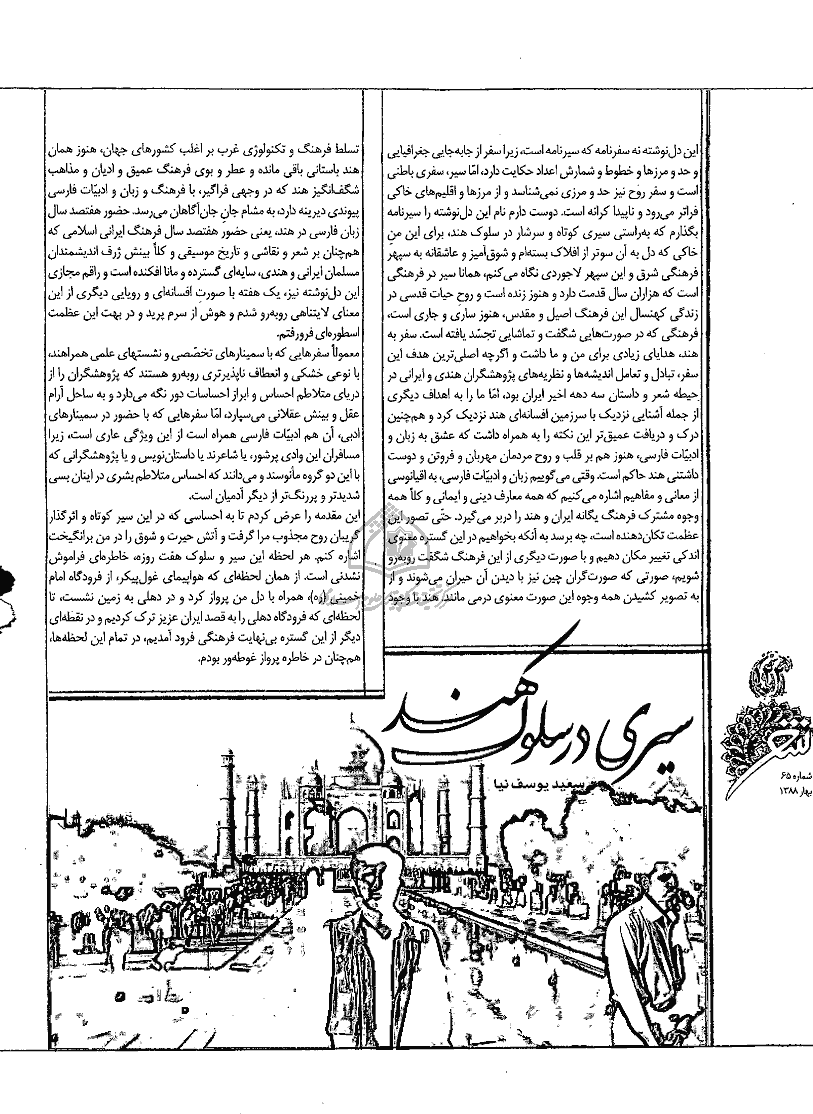 سیری در سلوک هند
سعید یوسف نیا
این دل‌نوشته نه سفرنامه که سیرنامه است، زیرا سفر از جابه‌جایی جغرافیایی
و حد و مرزها و خطوط و شمارش اعداد حکایت دارد، امّا سیر، سفری باطنی
است و سفر روح نیز حد و مرزی نمی‌شناسد و از مرزها و اقلیم‌های خاکی
فراتر می‌رود و ناپیدا کرانه است. دوست دارم نام این دل‌نوشته را سیرنامه
بگذارم که به‌راستی سیری کوتاه و سرشار در سلوک هند، برای این منِ
خاکی که دل به آن سوتر از افلاک بسته‌ام و شوق‌آمیز و عاشقانه به سپهر
فرهنگی شرق و این سپهر لاجوردی نگاه می‌کنم، همانا سیر در فرهنگی
است که هزاران سال قدمت دارد و هنوز زنده است و روحِ حیات قدسی در
زندگی کهنسال این فرهنگ اصیل و مقدس، هنوز ساری و جاری است،
فرهنگی که در صورت‌هایی شگفت و تماشایی تجسّد یافته است. سفر به
هند، هدایای زیادی برای من و ما داشت و اگرچه اصلی‌ترین هدف این
سفر، تبادل و تعامل اندیشه‌ها و نظریه‌های پژوهشگران هندی و ایرانی در
حیطه شعر و داستان سه دهه اخیر ایران بود، امّا ما را به اهداف دیگری
از جمله آشنایی نزدیک با سرزمین افسانه‌ای هند نزدیک کرد و هم‌چنین
درک و دریافت عمیق‌تر این نکته را به همراه داشت که عشق به زبان و
ادبیّات فارسی، هنوز هم بر قلب و روح مردمان مهربان و فروتن و دوست
داشتنی هند حاکم است. وقتی می‌گوییم زبان و ادبیّات فارسی، به اقیانوسی
از معانی و مفاهیم اشاره می‌کنیم که همه معارف دینی و ایمانی و کلاً همه
وجوه مشترک فرهنگ یگانه ایران و هند را دربر می‌گیرد. حتّی تصور این
عظمت تکان‌دهنده است، چه برسد به آنکه بخواهیم در این گستره معنوی
اندکی تغییر مکان دهیم و با صورت دیگری از این فرهنگ شگفت روبه‌رو
شویم، صورتی که صورت‌گران چین نیز با دیدن آن حیران می‌شوند و از
به تصویر کشیدن همه وجوه این صورت معنوی درمی مانند. هند با وجود
تسلط فرهنگ و تکنولوژی غرب بر اغلب کشورهای جهان، هنوز همان
هند باستانی باقی مانده و عطر و بوی فرهنگ عمیق و ادیان و مذاهب
شگف‌انگیز هند که در وجهی فراگیر، با فرهنگ و زبان و ادبیّات فارسی
پیوندی دیرینه دارد، به مشام جانِ جان‌آگاهان می‌رسد. حضور هفتصد سال
زبان فارسی در هند، یعنی حضور هفتصد سال فرهنگ ایرانی اسلامی که
هم‌چنان بر شعر و نقاشی و تاریخ موسیقی و کلاً بینش ژرف اندیشمندان
مسلمان ایرانی و هندی، سایه‌ای گسترده و مانا افکنده است و راقم مجازی
این دل‌نوشته نیز، یک هفته با صورتِ افسانه‌ای و رویایی دیگری از این
معنای لایتناهی روبه‌رو شدم و هوش از سرم پرید و در بهت این عظمت
اسطوره‌ای فرورفتم.
معمولاً سفرهایی که با سمینارهای تخصّصی و نشستهای علمی همراهند،
با نوعی خشکی و انعطاف ناپذیرتری روبه‌رو هستند که پژوهشگران را از
دریای متلاطم احساس و ابراز احساسات دور نگه می‌دارد و به ساحل آرام
عقل و بینش عقلانی می‌سپارد، امّا سفرهایی که با حضور در سمینارهای
ادبی، آن هم ادبیّات فارسی همراه است از این ویژگی عاری است، زیرا
مسافران این وادی پرشور، یا شاعرند یا داستان‌نویس و یا پژوهشگرانی که
با این دو گروه مأنوسند و می‌دانند که احساس متلاطم بشری در اینان بسی
شدیدتر و پررنگ‌تر از دیگر آدمیان است.
این مقدمه را عرض کردم تا به احساسی که در این سیر کوتاه و اثرگذار
گریبان روح مجذوب مرا گرفت و آتش حیرت و شوق را در من برانگیخت
اشاره کنم. هر لحظه این سیر و سلوک هفت روزه، خاطره‌ای فراموش
نشدنی است. از همان لحظه‌ای که هواپیمای غول‌پیکر، از فرودگاه امام
خمینی (ره)، همراه با دل من پرواز کرد و در دهلی به زمین نشست، تا
لحظه‌ای که فرودگاه دهلی را به قصد ایران عزیز ترک کردیم و در نقطه‌ای
دیگر از این گستره بی‌نهایت فرهنگی فرود آمدیم، در تمام این لحظه‌ها،
هم‌چنان در خاطره پرواز غوطه‌ور بودم.
شعر
شماره ۶۵
بهار ۱۳۸۸